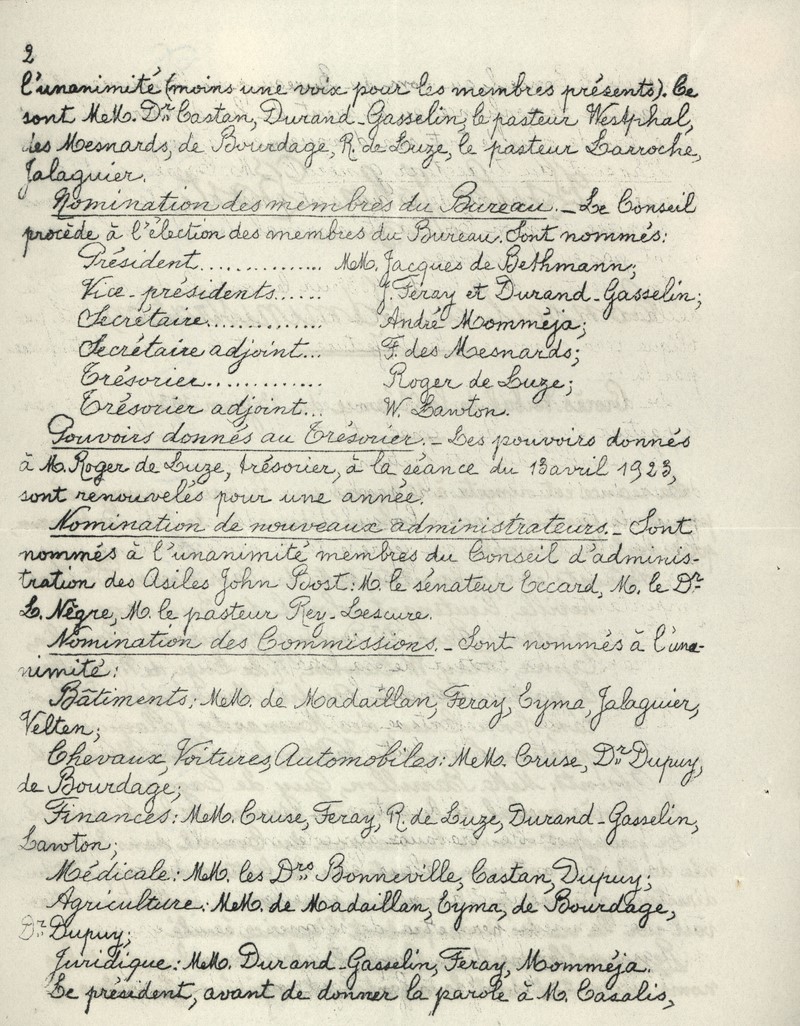 2
l'unanimité (moins une voix pour les membres présents). Ce
sont MeM. Dr Castan, Durand-Gasselin, le pasteur Westphal,
des Mesnards, de Bourdage, R. de Luze, le pasteur Larroche,
Jalaguier.
Nomination des membres du Bureau. - Le Conseil
procède à l'élection des membres du Bureau. Sont nommés:
Président............... MM. Jacques de Bethmann;
Vice-présidents...... J. Féray et Durand-Gasselin;
Secrétaire.............. André Momméja;
Secrétaire adjoint... F. des Mesnards;
Trésorier............. Roger de Luze;
Trésorier adjoint... W. Lawton.
Pouvoirs donnés au Trésorier. - Les pouvoirs donnés
à M. Roger de Luze, trésorier, à la séance du 13 avril 1923,
sont renouvelés pour une année.
Nomination de nouveaux administrateurs. - Sont
nommés à l'unanimité membres du Conseil d'adminis-
tration des Asiles John Bost: M. le sénateur Eccard, M. le Dr
L. Nègre, M. le pasteur Rey-Lescure.
Nomination des Commissions. - Sont nommés à l'una-
nimité:
Bâtiments: MeM. de Madaillan, Feray, Eyma, Jalaguier,
Velten;
Chevaux, Voitures, Automobiles: MeM. Cruse, Dr Dupuy,
de Bourdage;
Finances: MeM. Cruse, Feray, R. de Luze, Durand-Gasselin,
Lawton;
Médicale: MeM. les Drs Bonneville, Castan, Dupuy;
Agriculture: MeM. de Madaillan, Eyma, de Bourdage,
Dr Dupuy;
Juridique: MeM. Durand-Gasselin, Feray, Momméja.
Le président, avant de donner la parole à M. Casalis,